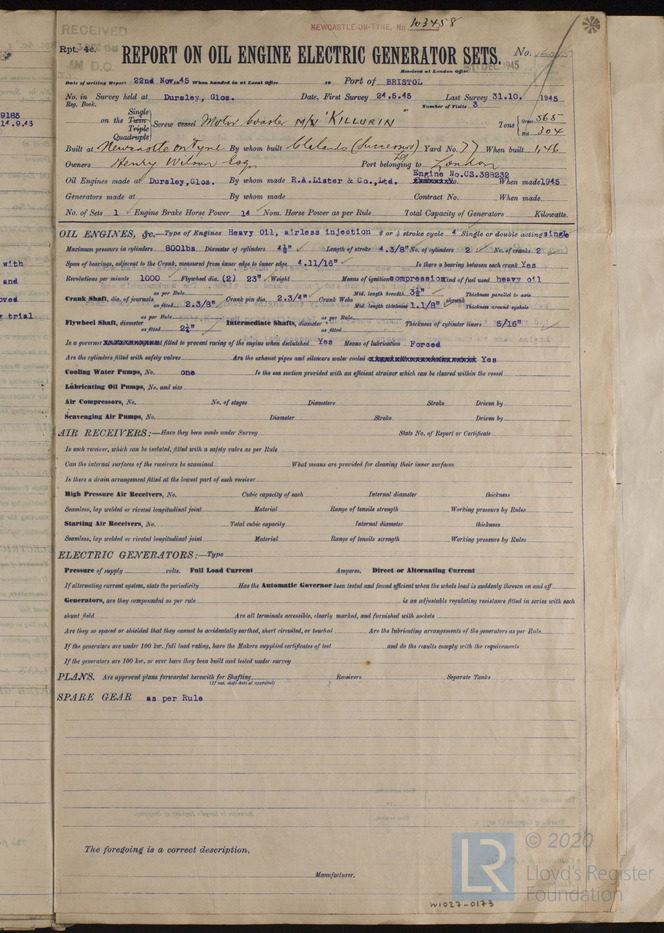 RECEIVED
NEWCASTLE-ON-TYNE, No 103458
Rpt. 4c.
REPORT ON OIL ENGINE ELECTRIC GENERATOR SETS.
No.
IN D.O.
Received at London Office
11 DEC 1945
Date of writing Report 22nd Nov. 45 When handed in at Local Office 19 Port of BRISTOL
No. in Survey held at Dursley, Glos. Date, First Survey 24.5.45 Last Survey 31.10. 1945
Reg. Book. Number of Visits 3
Single
on the Twin Screw vessel Motor Coaster M/V "KILLURIN" Tons Gross 565
Triple Net 304
Quadruple
Built at Newcastle on Tyne By whom built Clelands (Successors) Ltd Yard No. 77 When built 1,46
Owners Henry Wilson Esq. Port belonging to London
Engine No.CS.388232
Oil Engines made at Dursley, Glos. By whom made R.A.Lister & Co., Ltd. When made 1945
Generators made at By whom made Contract No. When made
No. of Sets 1 Engine Brake Horse Power 14 Nom. Horse Power as per Rule Total Capacity of Generators Kilowatts.
OIL ENGINES, &c.—Type of Engines Heavy Oil, airless injection 2 or 4 stroke cycle 4 Single or double acting single
Maximum pressure in cylinders 800lbs Diameter of cylinders 4½" Length of stroke 4.3/8" No. of cylinders 2 No. of cranks 2
Span of bearings, adjacent to the Crank, measured from inner edge to inner edge 4.11/16" Is there a bearing between each crank Yes
Revolutions per minute 1000 Flywheel dia. (2) 23" Weight Means of ignition compression Kind of fuel used heavy oil
Crank Shaft, dia. of journals as per Rule as fitted 2.3/8" Crank pin dia. 2.3/4" Crank Webs Mid. length breadth 3½" Mid. length thickness 1.1/8" shrunk Thickness parallel to axis Thickness around eyehole
Flywheel Shaft, diameter as per Rule as fitted 2¼" Intermediate Shafts, diameter as per Rule as fitted Thickness of cylinder liners 5/16"
Is a governor fitted to prevent racing of the engine when declutched Yes Means of lubrication Forced
Are the cylinders fitted with safety valves Are the exhaust pipes and silencers water cooled Yes
Cooling Water Pumps, No. one Is the sea suction provided with an efficient strainer which can be cleared within the vessel
Lubricating Oil Pumps, No. and size
Air Compressors, No. No. of stages Diameters Stroke Driven by
Scavenging Air Pumps, No. Diameter Stroke Driven by
AIR RECEIVERS:—Have they been made under Survey State No. of Report or Certificate
Is each receiver, which can be isolated, fitted with a safety valve as per Rule
Can the internal surfaces of the receivers be examined What means are provided for cleaning their inner surfaces
Is there a drain arrangement fitted at the lowest part of each receiver
High Pressure Air Receivers, No. Cubic capacity of each Internal diameter thickness
Seamless, lap welded or riveted longitudinal joint Material Range of tensile strength Working pressure by Rules
Starting Air Receivers, No. Total cubic capacity Internal diameter thickness
Seamless, lap welded or riveted longitudinal joint Material Range of tensile strength Working pressure by Rules
ELECTRIC GENERATORS:—Type
Pressure of supply volts. Full Load Current Amperes. Direct or Alternating Current
If alternating current system, state the periodicity Has the Automatic Governor been tested and found efficient when the whole load is suddenly thrown on and off
Generators, are they compounded as per rule is an adjustable regulating resistance fitted in series with each
shunt field Are all terminals accessible, clearly marked, and furnished with sockets
Are they so spaced or shielded that they cannot be accidentally earthed, short circuited, or touched Are the lubricating arrangements of the generators as per Rule
If the generators are under 100 kw. full load rating, have the Makers supplied certificates of test and do the results comply with the requirements
If the generators are 100 kw. or over have they been built and tested under survey
PLANS. Are approved plans forwarded herewith for Shafting Receivers Separate Tanks
(If not, state date of approval)
SPARE GEAR as per Rule
The foregoing is a correct description,
Manufacturer.
9185
14.9.45
with
and
oved
trial
© 2020
LR Lloyd's Register
Foundation
W1027-0173